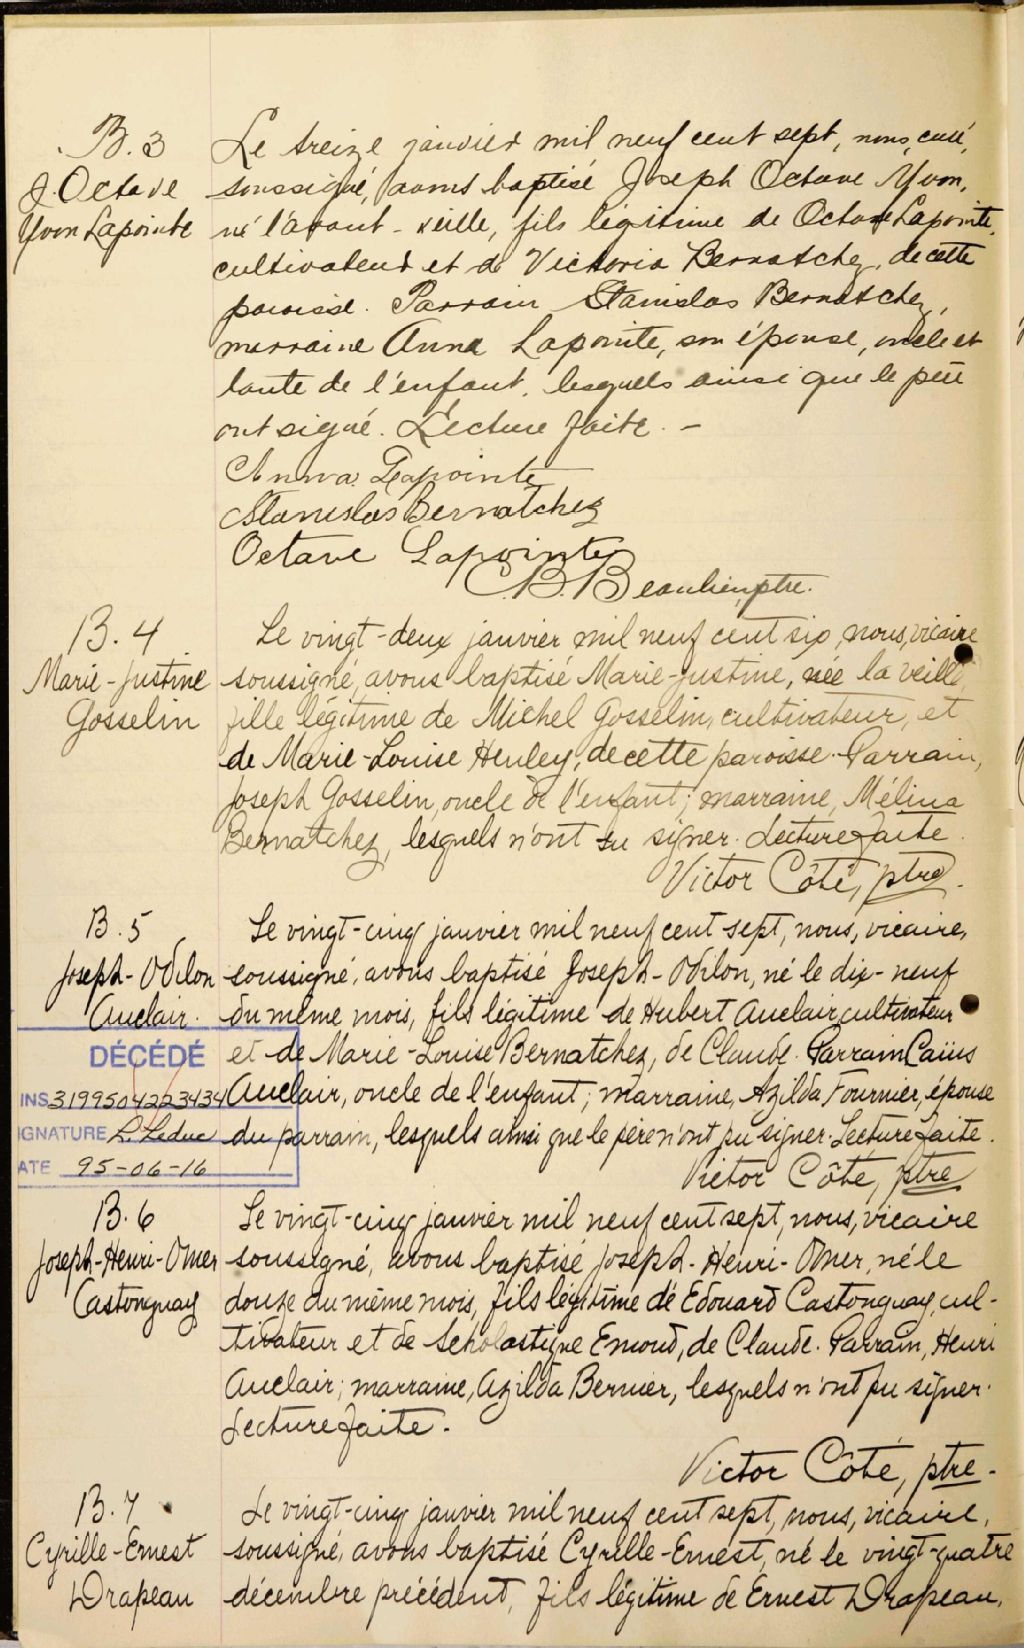 B. 3
J. Octave
Yvon Lapointe
Le treize janvier mil neuf cent sept, nous, curé,
soussigné, avons baptisé Joseph Octave Yvon,
né l'avant-veille, fils légitime de Octave Lapointe,
cultivateur et de Victoria Bernatchez, de cette
paroisse. Parrain Stanislas Bernatchez,
marraine Anna Lapointe, son épouse, oncle et
tante de l'enfant, lesquels ainsi que le père
ont signé. Lecture faite. -
Anna Lapointe
Stanislas Bernatchez
Octave Lapointe
C.B. Beaulieu, ptre.
B. 4
Marie-Justine
Gosselin
Le vingt-deux janvier mil neuf cent six, nous, vicaire
soussigné, avons baptisé Marie-Justine, née la veille
fille légitime de Michel Gosselin, cultivateur, et
de Marie-Louise Henley, de cette paroisse. Parrain,
Joseph Gosselin, oncle de l'enfant; marraine, Mélina
Bernatchez, lesquels n'ont su signer. Lecture faite.
Victor Côté, ptre.
B. 5
Joseph-Odilon
Auclair.
Le vingt-cinq janvier mil neuf cent sept, nous, vicaire,
soussigné, avons baptisé Joseph-Odilon, né le dix-neuf
du même mois, fils légitime de Hubert Auclair, cultivateur
et de Marie-Louise Bernatchez, de Claude. Parrain Caïus
Auclair, oncle de l'enfant; marraine, Azilda Fournier, épouse
du parrain, lesquels ainsi que le père n'ont pu signer. Lecture faite.
Victor Côté, ptre
DÉCÉDÉ
INS 3199504223434
IGNATURE L. Leduc
ATE 95-06-16
B. 6
Joseph-Henri-Omer
Castonguay
Le vingt-cinq janvier mil neuf cent sept, nous, vicaire
soussigné, avons baptisé Joseph-Henri-Omer, né le
douze du même mois, fils légitime de Edouard Castonguay, cul-
tivateur et de Scholastique Emond, de Claude. Parrain, Henri
Auclair; marraine, Azilda Bernier, lesquels n'ont pu signer.
Lecture faite.
Victor Côté, ptre.
B. 7
Cyrille-Ernest
Drapeau
Le vingt-cinq janvier mil neuf cent sept, nous, vicaire,
soussigné, avons baptisé Cyrille-Ernest, né le vingt-quatre
décembre précédent, fils légitime de Ernest Drapeau,